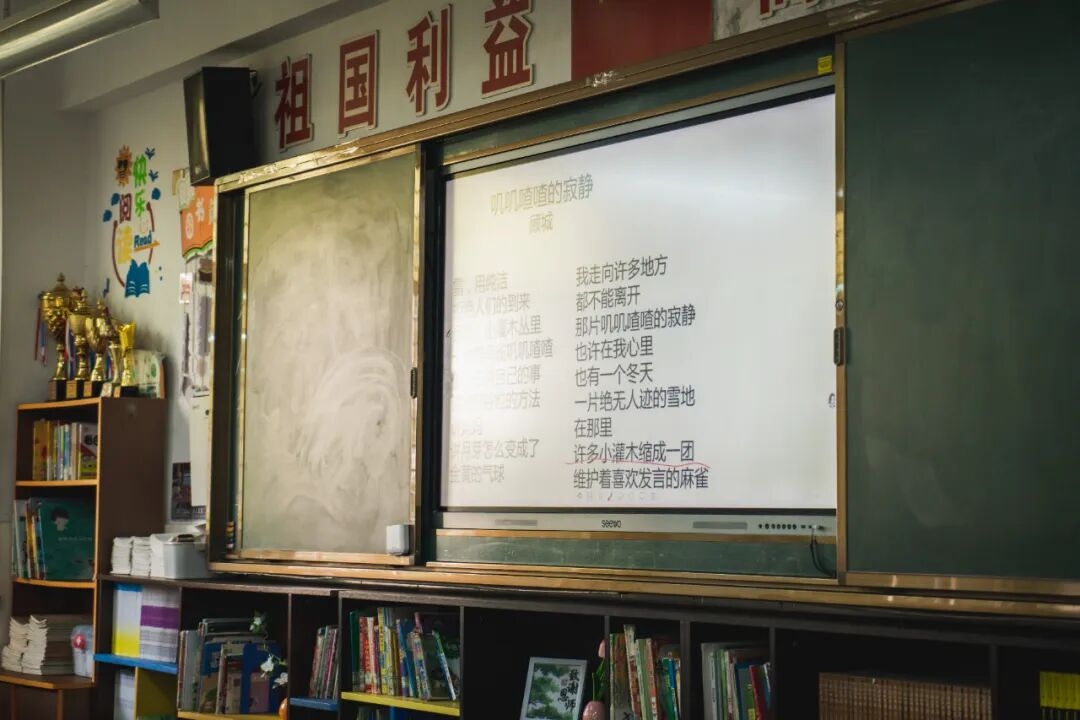 祖国利益
快乐
阅读
Read
书
叽叽喳喳的寂静
顾城
雪，用纯洁
人们的到来
小灌木丛里
叽叽喳喳
自己的事
的方法
讲月芽怎么变成了
金黄的气球
我走向许多地方
都不能离开
那片叽叽喳喳的寂静
也许在我心里
也有一个冬天
一片绝无人迹的雪地
在那里
许多小灌木缩成一团
维护着喜欢发言的麻雀
seewo